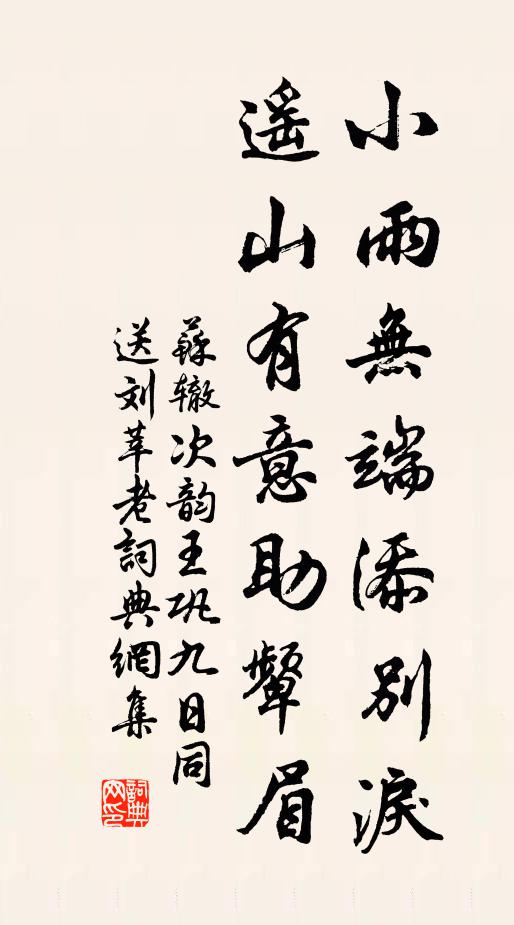 小雨無端添別淚
遥山有意助顰眉
蘇辙次韵王巩九日同
送刘莘老詞典網集
詞典
网印